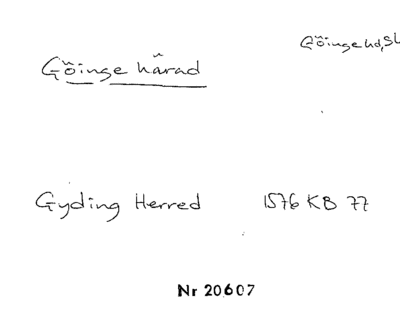 Göinge hd, Sk
Göinge härad
Gyding Herred 1576 KB 77
Nr 20607